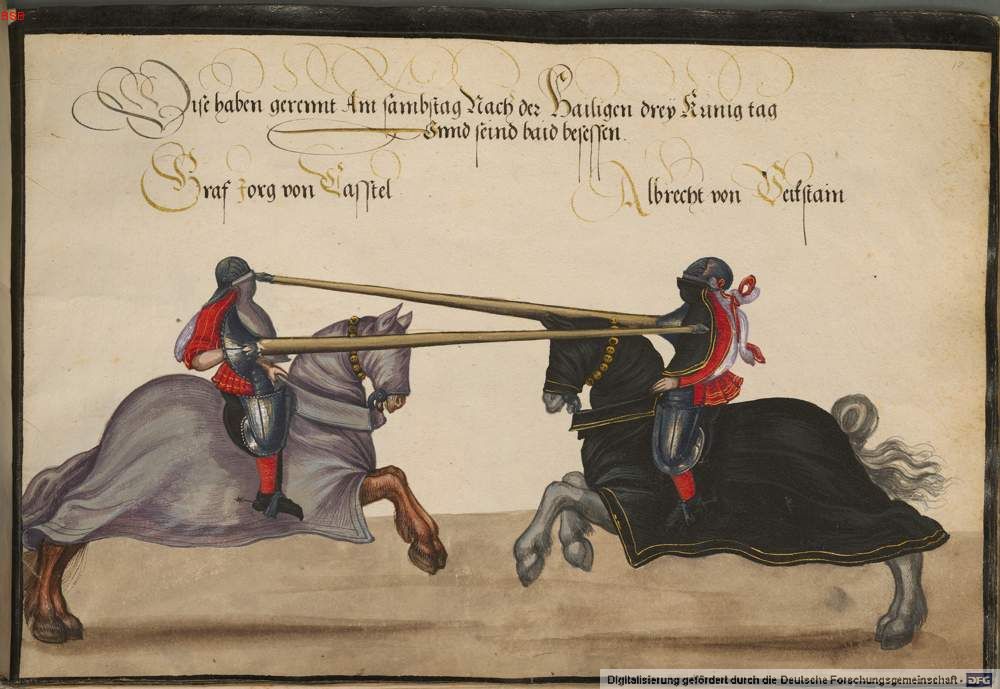 BSB
Dise haben gerennt Am sambstag Nach der Hailigen dreÿ Künig tag
Unnd seind baid besessen.
Graf Jorg von Casstel
Albrecht von
Digitalisierung gefördert durch die Deutsche Forschungsgemeinschaft - DFG